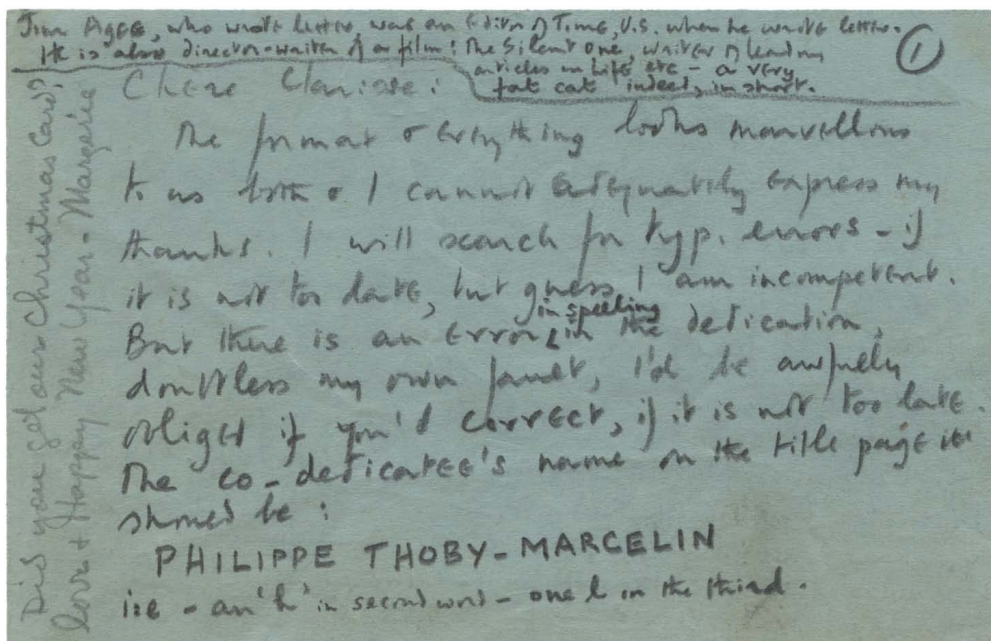 Jim Agee, who wrote letter, was an Editor of Time, U.S. when he wrote letter.
He is also director-writer of a film: The Silent One, writer of leading
articles in Life, etc - a very
fat cat indeed, in short.
1
Chere Clarisse:
The format & everything looks marvellous
to us both & I cannot adequately express my
thanks. I will search for typ. errors - if
it is not too late, but guess I am incompetent.
But there is an error in spelling in the dedication,
doubtless my own fault, I'd be awfully
obliged if you'd correct, if it is not too late.
The co-dedicatee's name on the title page
should be:
PHILIPPE THOBY-MARCELIN
i.e - an 'h' in second word - one l in the third.
Did you get our Christmas Card?
love & Happy New Year - Margerie